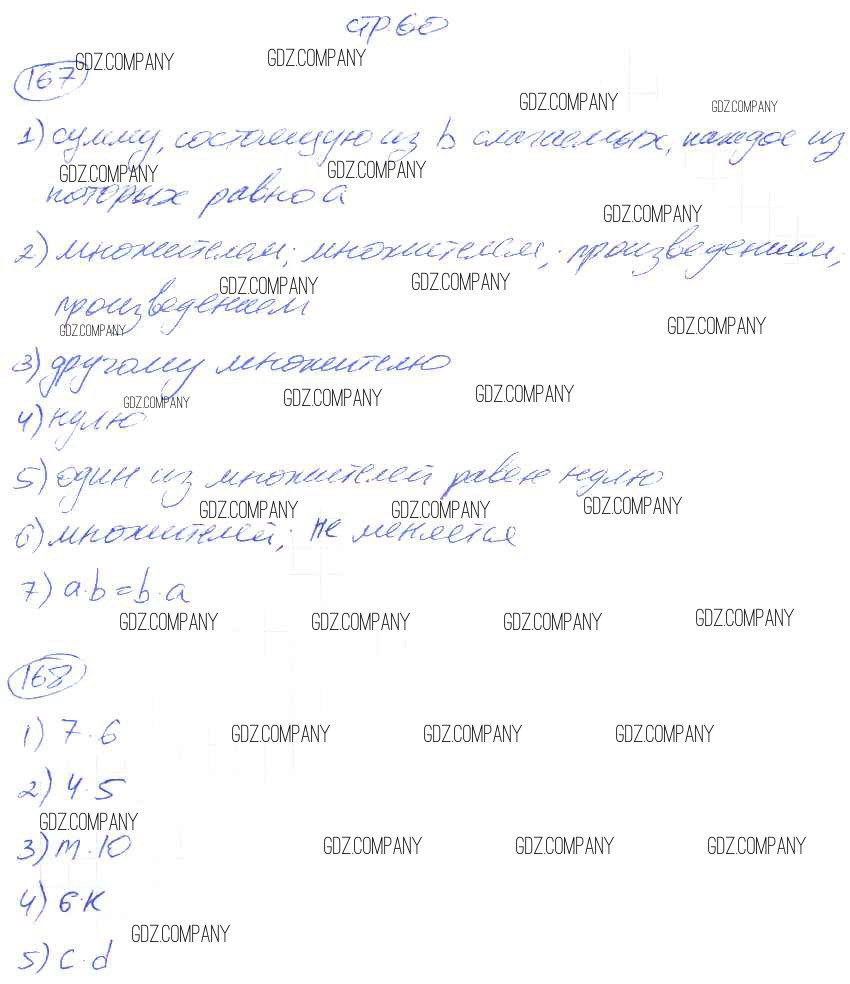 стр.60
GDZ.COMPANY GDZ.COMPANY
167
GDZ.COMPANY GDZ.COMPANY
1) сумму, состоящую из b слагаемых, каждое из
GDZ.COMPANY GDZ.COMPANY
которых равно a
GDZ.COMPANY
2) множителем; множителем; произведением;
GDZ.COMPANY GDZ.COMPANY
произведением
GDZ.COMPANY GDZ.COMPANY
3) другому множителю
GDZ.COMPANY GDZ.COMPANY GDZ.COMPANY
4) нулю
5) один из множителей равен нулю
GDZ.COMPANY GDZ.COMPANY GDZ.COMPANY
6) множителей; не меняется
7) a·b=b·a
GDZ.COMPANY GDZ.COMPANY GDZ.COMPANY GDZ.COMPANY
168
1) 7·6
GDZ.COMPANY GDZ.COMPANY GDZ.COMPANY
2) 4·5
GDZ.COMPANY
3) m·10
GDZ.COMPANY GDZ.COMPANY GDZ.COMPANY
4) 6·k
GDZ.COMPANY
5) c·d